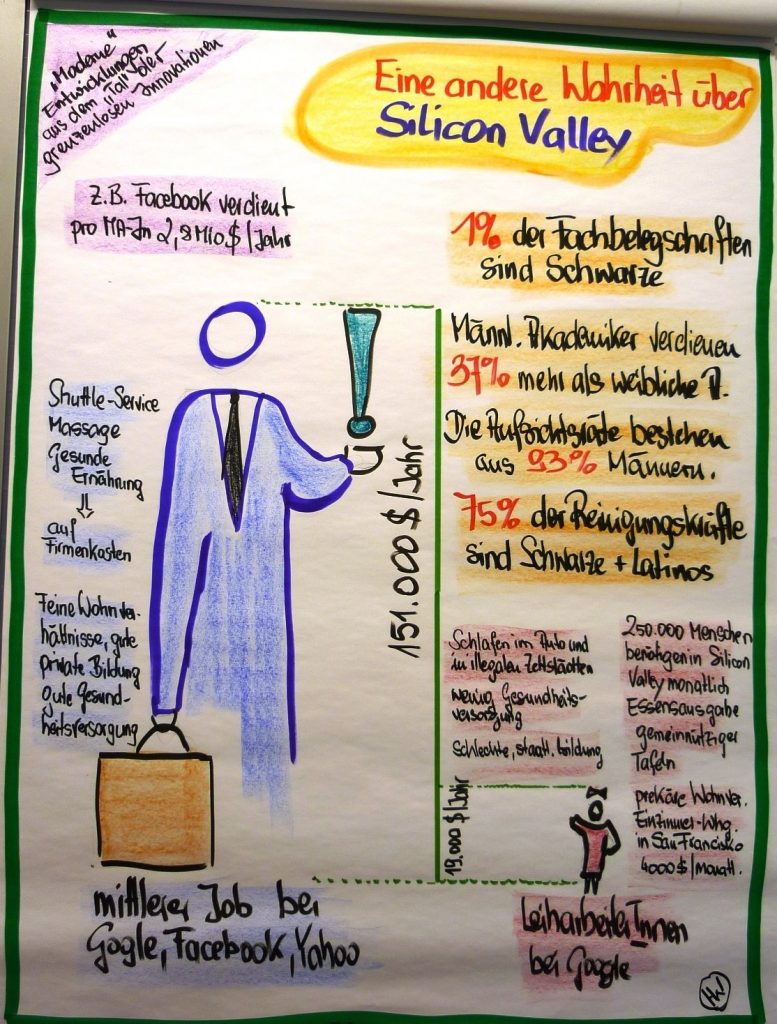 „Moderne"
Entwicklungen
aus dem "Tal" der
grenzenlosen Innovationen
Eine andere Wahrheit über
Silicon Valley
Z.B. Facebook verdient
pro MA-In 2,8 Mio $/Jahr
1% der Fachbelegschaften
sind Schwarze
Männl. Akademiker verdienen
37% mehr als weibliche A.
Die Aufsichtsräte bestehen
aus 93% Männern.
75% der Reinigungskräfte
sind Schwarze + Latinos
Shuttle-Service
Massage
Gesunde
Ernährung
⇓
auf
Firmenkosten
Feine Wohnver-
hältnisse, gute
private Bildung
gute Gesund-
heitsversorgung
151.000 $/Jahr
Schlafen im Auto und
in illegalen Zeltstädten
wenig Gesundheits-
versorgung
schlechte, staatl. Bildung
19.000 $/Jahr
250.000 Menschen
benötigen in Silicon
Valley monatlich
Essensausgabe
gemeinnütziger
Tafeln
prekäre Wohnver.
Einzimmer-Whg.
in San Francisko
4000 $/Monatl.
mittlerer Job bei
Gogle, Facebook, Yahoo
LeiharbeiterInnen
bei Google